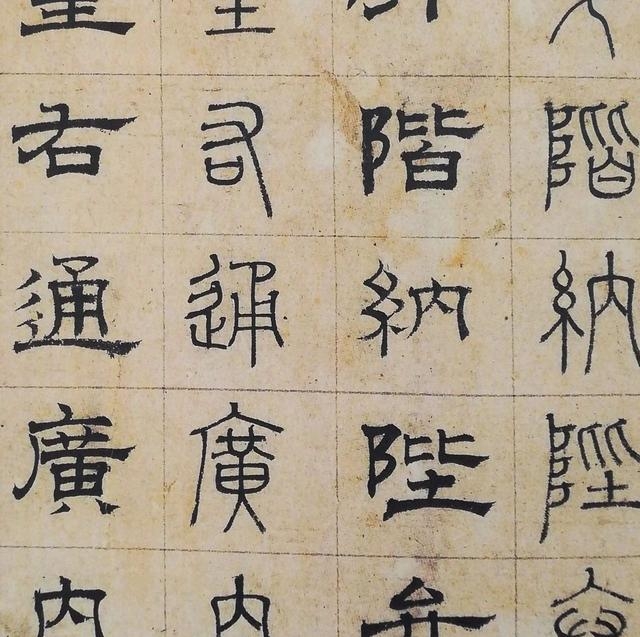 階納陛
階納陛弁
右通廣内
右通廣内